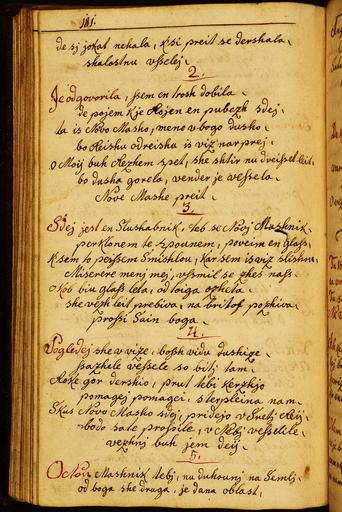 181.
de sj jokat nehala, Ksi preit se dershala,
shalostnu vsselej.
2.
Je odgovorila, jsem en trosh dobila
de pojem Kje Kojen en pubezh sdej,
ta is Novo Masho, meno vbogo dusho
bo Reishu odreisha is viz nar prej,
o Moij buh Rezhem spet, she shtir nu dveisset leit,
bo dusha gorela, vender je vessela
Nove Mashe preit.
3.
Sdej jest en Slushabnik, teb se Novj Mashnik
perklonem te spounem, poveim en glass,
K sem to peissem Smishlou, kar sem is viz slishou
Miserere menj mej, vssmil se zhes nass.
okob biu glass leta, od toiga ozheta
she vezh leit prebiva, na britof pozhiva
prossi Sain boga.
4.
Poglodej she v vize, bossh vidu dushize
ssazhele vessele so bitj tam.
Roke gor dershio, prut tebi kerzhijo
pomagej pomagei, sterpleina nam.
Skus Novo Masho sdej, pridejo v Svetj Rèij,
bodo sate prossile, v Nebj vesselile
vezhnj buh jem deij.
5.
Ozhou Mashnik tebj, nu duhounj na Semlj,
od boga she druga, je dana oblast,